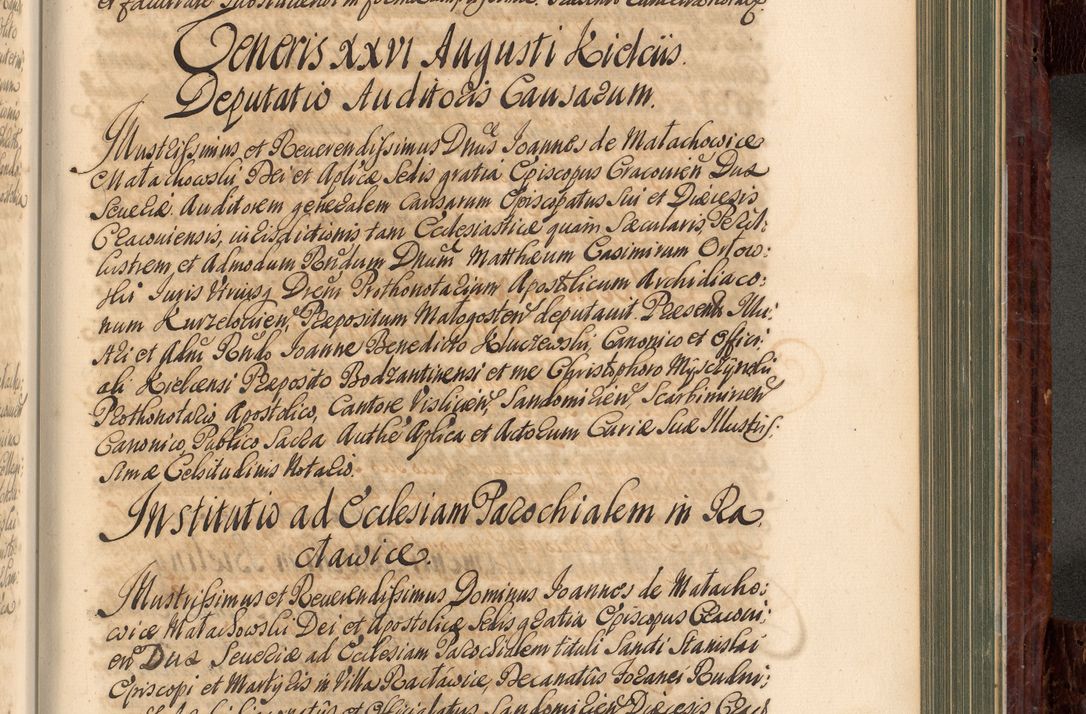 et facultate substituendi in forma
Veneris XXVI Augusti Kielciis.
Deputatio Auditoris Causarum.
Illustrissimus, et Reverendissimus Dnus Joannes de Małachowice
Małachowski Dei et Aplicæ Sedis gratia Episcopus Cracovien Dux
Severiæ Auditorem generalem Causarum Episcopatus sui et Diæcesis
Cracoviensis, iurisdictionis tam Ecclesiasticæ quam Sæcularis Peril:
lustrem, et Admodum Rndum Dnum Matthæum Casimirum Orłow:
ski Juris Utriusq Drem Prothonotarium Apostolicum Archidiaco:
num Kurzelovien, Præpositum Małogosten deputavit. Præsent Illu:
stri et Admo Rndo Joanne Benedicto Kluczewski, Canonico et Offici:
ali Kielcensi Præposito Bodzantinensi et me Christophoro Myszczyński
Prothonotario Apostolico, Cantore Vislicien, Sandomirien Scarbimirien
Canonico, Publico Sacra Authe Aplica et Actorum Curiæ Suæ Illustris:
simæ Celsitudinis Notario.
Institutio ad Ecclesiam Parochialem in Ra,
cławice.
Illustrissimus et Reverendissimus Dominus Joannes de Małacho:
wice Małachowski Dei et Apostolicæ Sedis gratia Episcopus Cracovi:
en Dux Severiæ ad Ecclesiam Parochialem tituli Sancti Stanislai
Episcopi et Martyris in Villa Racławice, Decanatus Foranei Rudni:
Officialatus Sandomirien Diæcesis Crac